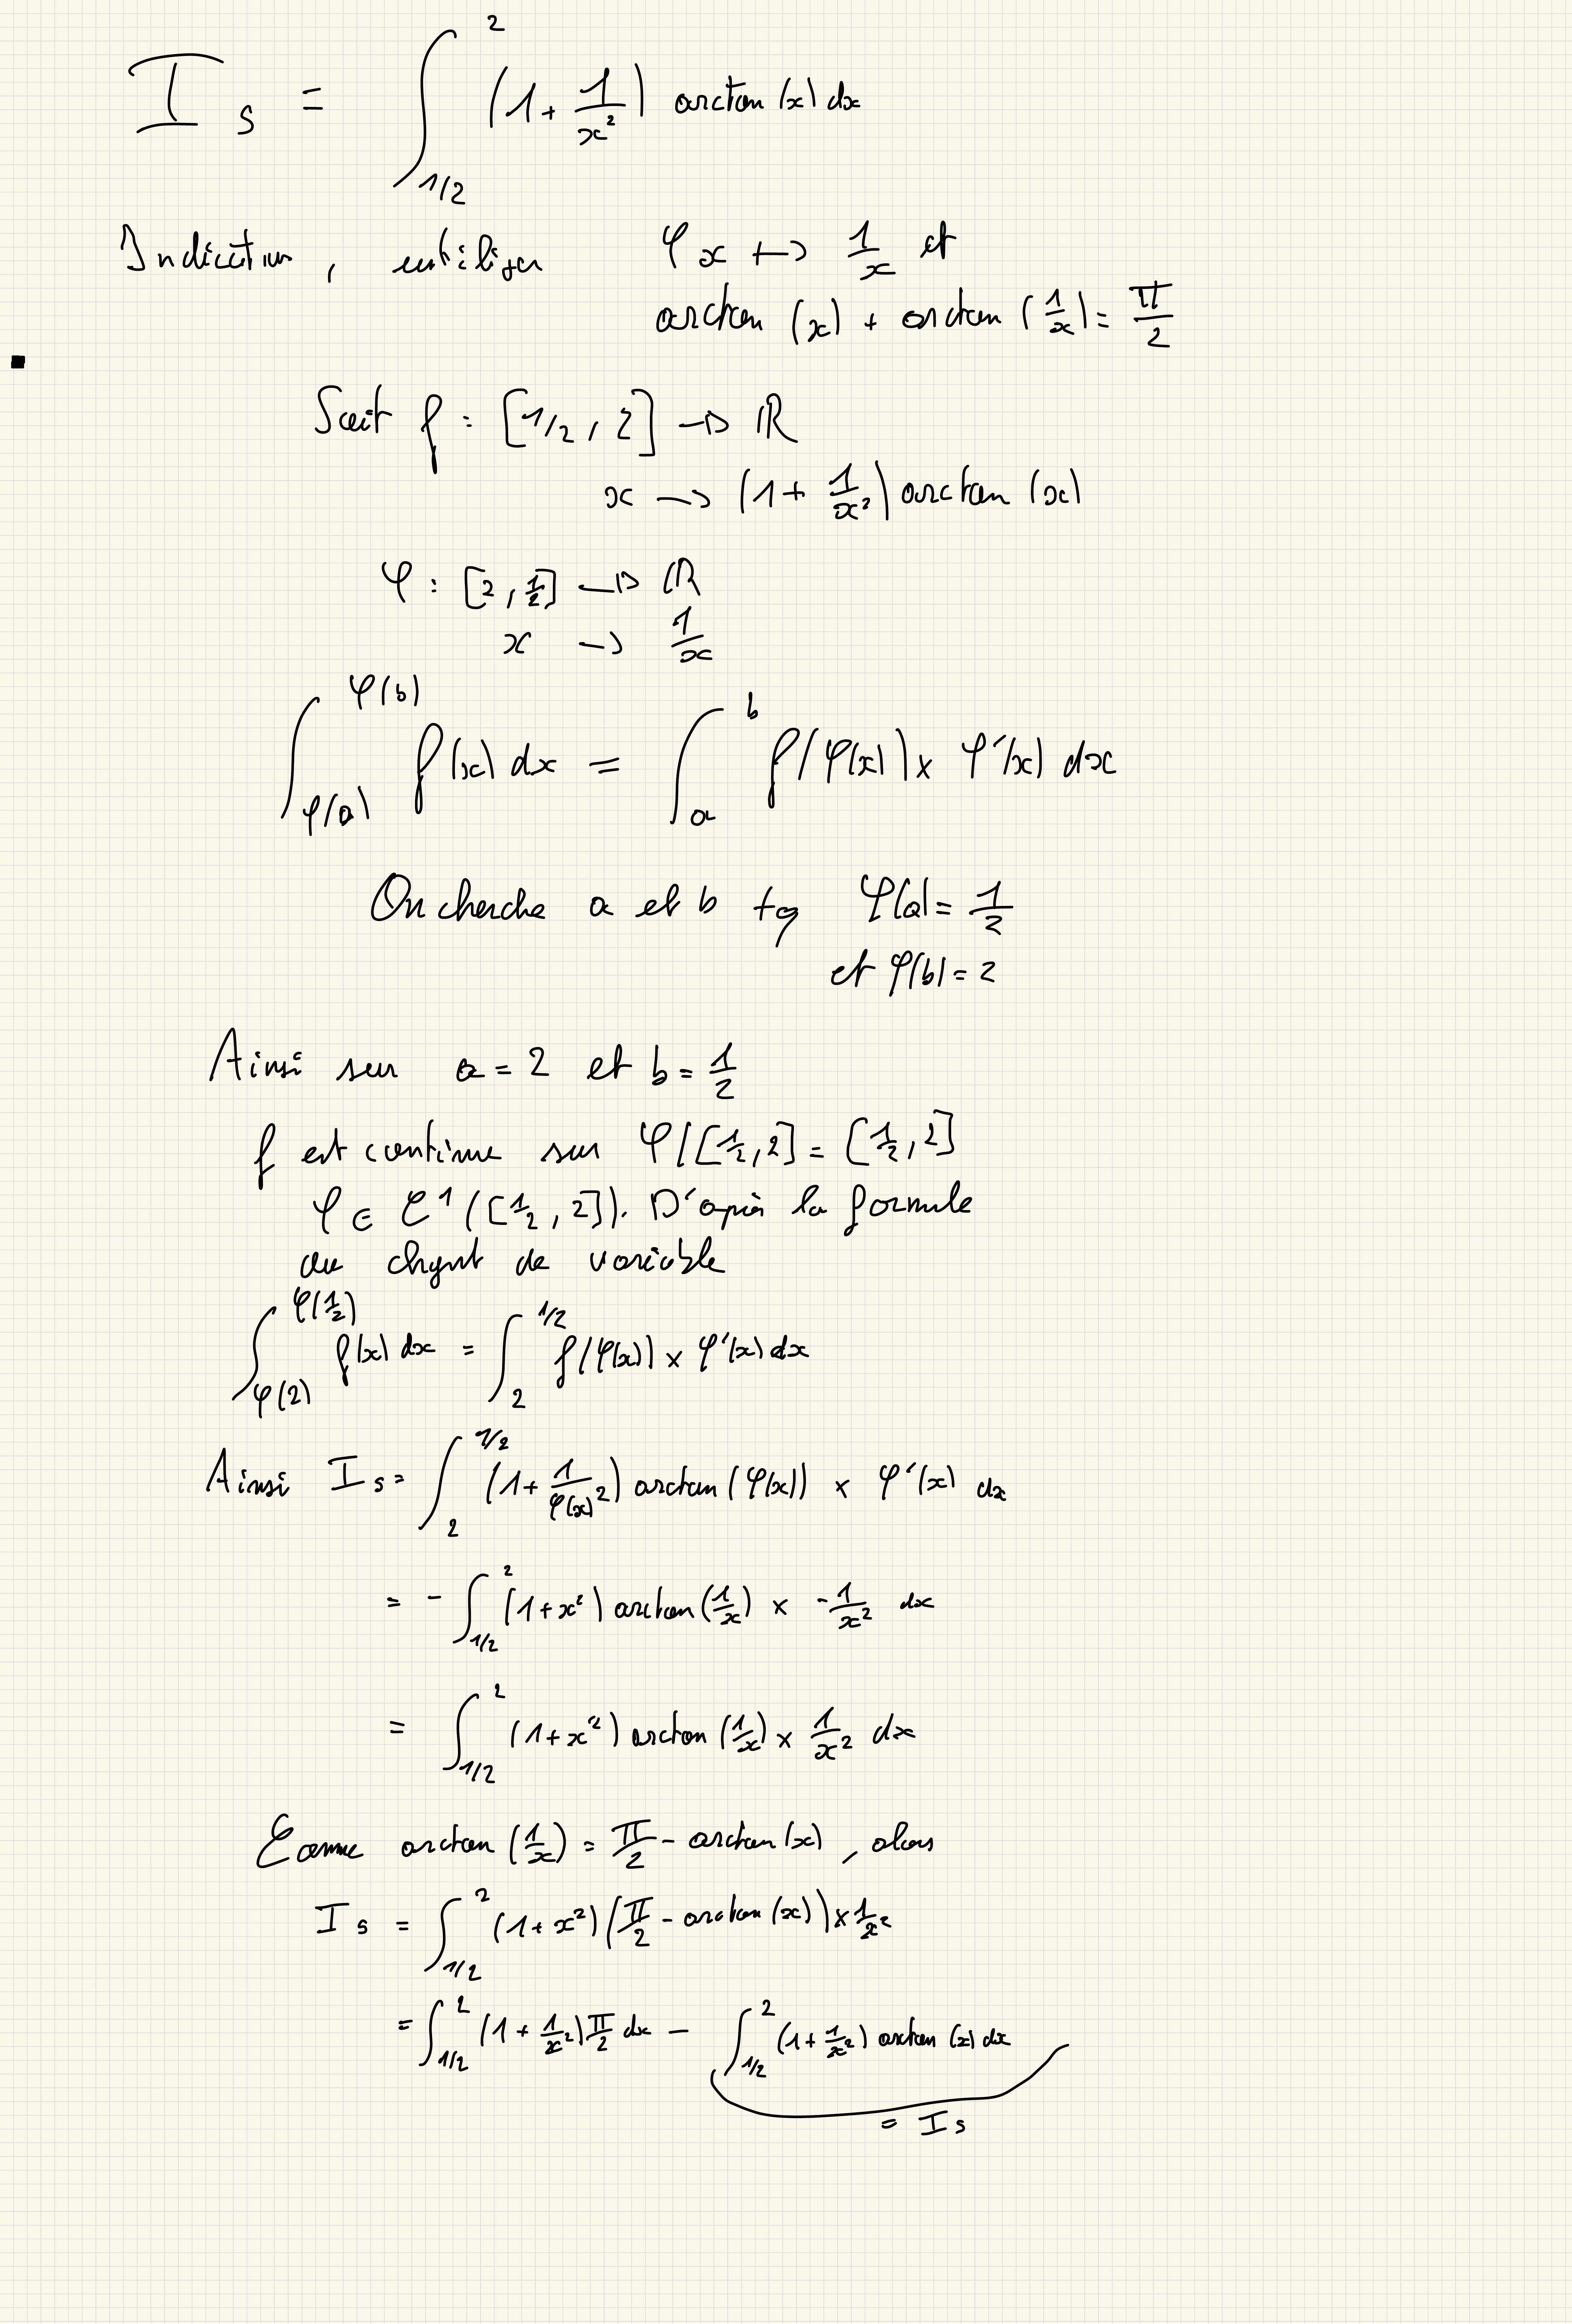 I_5 = ∫_{1/2}^{2} (1 + 1/x²) arctan(x) dx
Indication, utiliser φ x ↦ 1/x et
arctan (x) + arctan (1/x) = π/2
Soit f : [1/2, 2] → ℝ
x → (1 + 1/x²) arctan (x)
φ : [2, 1/2] → ℝ
x → 1/x
∫_{φ(a)}^{φ(b)} f(x) dx = ∫_{a}^{b} f(φ(x)) × φ'(x) dx
On cherche a et b tq φ(a) = 1/2
et φ(b) = 2
Ainsi sur a = 2 et b = 1/2
f est continue sur φ([1/2, 2] = [1/2, 2]
φ ∈ C¹([1/2, 2]). D'après la formule
du chgmt de variable
∫_{φ(2)}^{φ(1/2)} f(x) dx = ∫_{2}^{1/2} f(φ(x)) × φ'(x) dx
Ainsi I_5 = ∫_{2}^{1/2} (1 + 1/φ(x)²) arctan(φ(x)) × φ'(x) dx
= - ∫_{1/2}^{2} (1 + x²) arctan(1/x) × -1/x² dx
= ∫_{1/2}^{2} (1 + x²) arctan (1/x) × 1/x² dx
Comme arctan (1/x) = π/2 - arctan(x), alors
I_5 = ∫_{1/2}^{2} (1 + x²) (π/2 - arctan (x)) × 1/x²
= ∫_{1/2}^{2} (1 + 1/x²) π/2 dx - ∫_{1/2}^{2} (1 + 1/x²) arctan (x) dx
= I_5